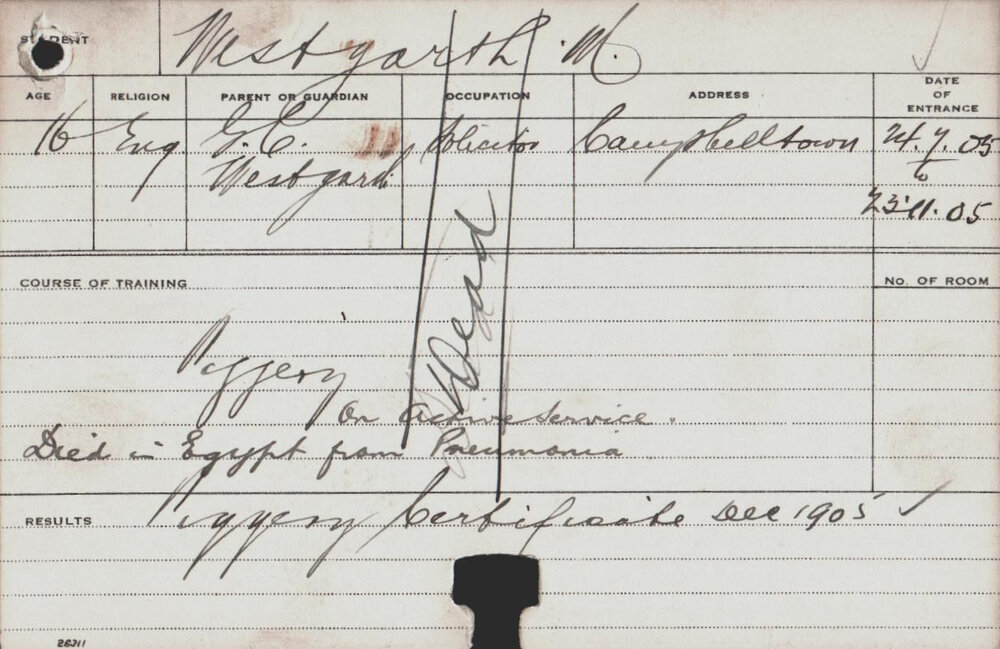 STUDENT Westgarth M.
AGE RELIGION PARENT OR GUARDIAN OCCUPATION ADDRESS DATE OF ENTRANCE
16 Eng. G. C. 11 Solicitor Campbelltown 24.7.05
Westgarth to
23.11.05
Dead
COURSE OF TRAINING No. OF ROOM
Piggery
On Active Service.
Died in Egypt from Pneumonia
RESULTS Piggery Certificate Dec 1905 ✓
26311